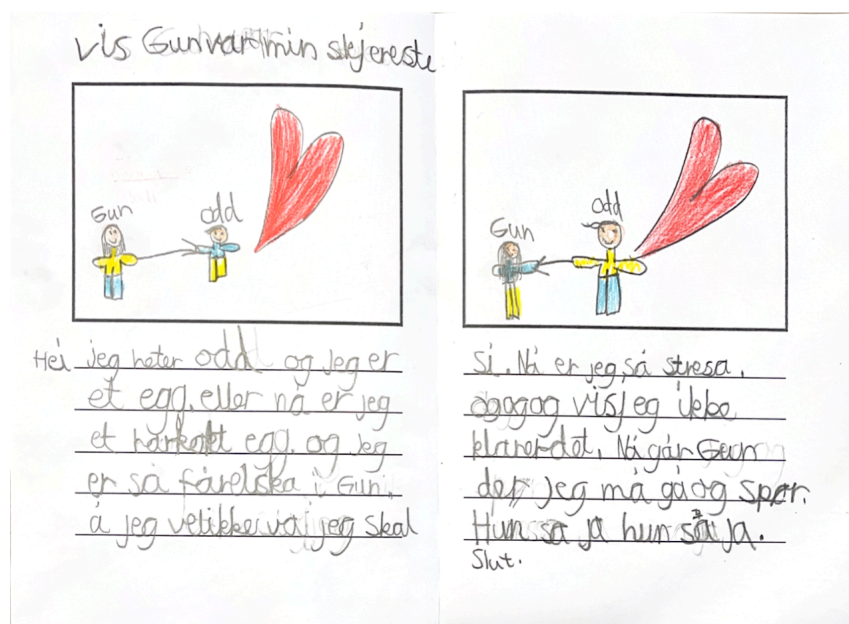 vis Gun var min skjereste
Gun
odd
Hei jeg heter odd og jeg er
et egg. eller nå er jeg
et hårkokt egg. og jeg
er så fårelska i Gun.
å jeg vet ikke va jeg skal
Gun
Odd
si. Nå er jeg så stresa.
ogogog vis jeg ikke
klarer det. Nå går Gun
der jeg må gå og spør.
Hun sa ja hun så ja.
Slut.